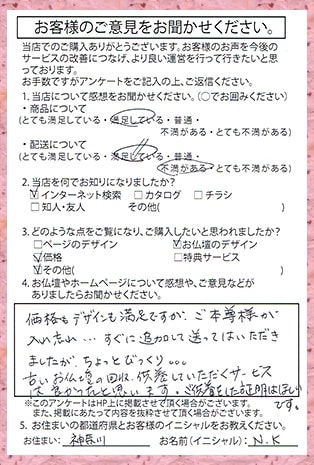 お客様のご意見をお聞かせください。
当店でのご購入ありがとうございます。お客様のお声を今後の
サービスの改善につなげ、より良い運営を行って行きたいと思
っております。
お手数ですがアンケートをご記入の上、ご返信ください。
1. 当店について感想をお聞かせください。(○でお囲みください)
・商品について
(とても満足している・満足している・普通・
不満がある・とても不満がある)
・配送について
(とても満足している・満足している・普通・
不満がある・とても不満がある)
2. 当店を何でお知りになりましたか?
☑インターネット検索 □カタログ □チラシ
□知人・友人 その他( )
3. どのような点をご覧になり、ご購入したいと思われましたか?
□ページのデザイン ☑お仏壇のデザイン
☑価格 □特典サービス
☑その他( )
4. お仏壇やホームページについて感想や、ご意見などが
ありましたらお聞かせください。
価格もデザインも満足ですが、ご本尊様が
入って いただき
ましたが、ちょっとびっくり。。。
古いお仏壇の回収、供養していただくサービス
は良かったと思います。ご供養をした証明はほしい
です。
※このアンケートはHP上に掲載させて頂く場合がございます。
また、掲載にあたって内容を抜粋させて頂く場合がございます。
5. お住まいの都道府県とお客様のイニシャルをお教えください。
お住まい: 神奈川 お名前(イニシャル): N.K